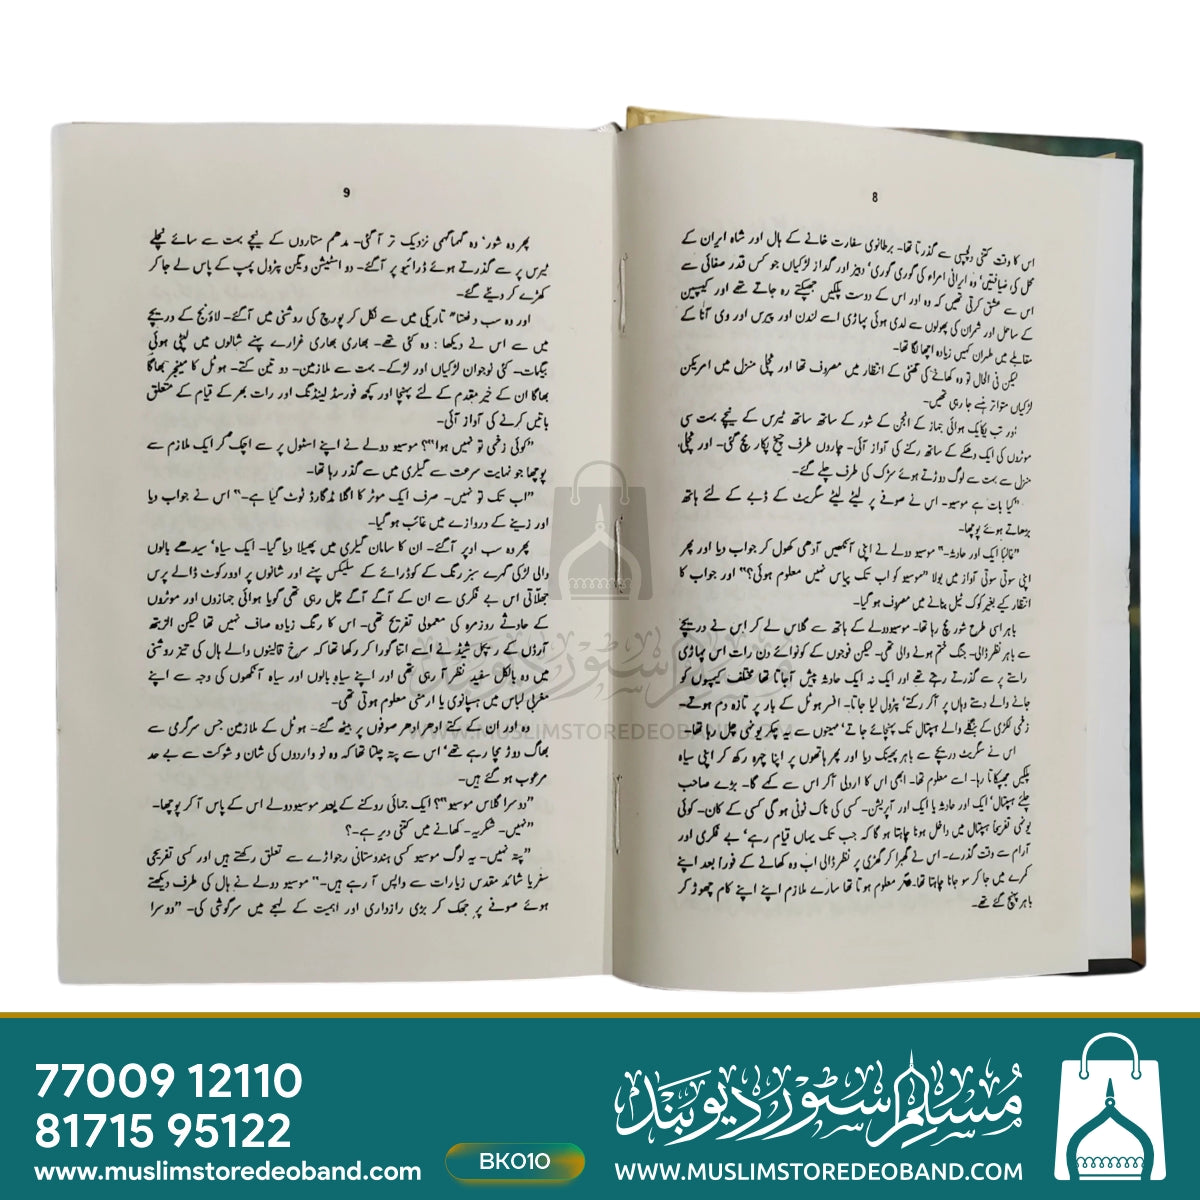 8
اس کا وقت کتنی دلچسپی سے گذرتا تھا۔ برطانوی سفارت خانے کے ہال اور شاہ ایران کے
محل کی ضیافتیں‘ وہ ایرانی امراء کی گوری گوری‘ دبیز اور گداز لڑکیاں جو کس قدر صفائی سے
اس سے عشق کرتی تھیں کہ وہ اور اس کے دوست پلکیں جھپکتے رہ جاتے تھے اور کیسپین
کے ساحل اور شمران کی پھولوں سے لدی ہوئی پہاڑی اسے لندن اور پیرس اور وی آنا کے
مقابلے میں طہران کہیں زیادہ اچھا لگا تھا۔
لیکن فی الحال تو وہ کھانے کی گھنٹی کے انتظار میں مصروف تھا اور نچلی منزل میں امریکن
لڑکیاں متواتر ہنسے جا رہی تھیں۔
اور تب یکایک ہوائی جہاز کے انجن کے شور کے ساتھ ساتھ ٹیرس کے نیچے بہت سی
موٹروں کی ایک دھچکے کے ساتھ رکنے کی آواز آئی۔ چاروں طرف چیخ پکار مچ گئی۔ اور نچلی
منزل سے بہت سے لوگ دوڑتے ہوئے سڑک کی طرف چلے گئے۔
”کیا بات ہے موسیو۔ اس نے صوفے پر لیٹے لیٹے سگریٹ کے ڈبے کے لئے ہاتھ
بڑھاتے ہوئے پوچھا۔
”غالباً ایک اور حادثہ۔“ موسیو دولے نے اپنی آنکھیں آدھی کھول کر جواب دیا اور پھر
اپنی سوتی سوتی آواز میں بولا ”موسیو کو اب تک پیاس نہیں معلوم ہوئی؟“ اور جواب کا
انتظار کیے بغیر کوک ٹیل بنانے میں مصروف ہو گیا۔
باہر اسی طرح شور مچ رہا تھا۔ موسیو دولے کے ہاتھ سے گلاس لے کر اس نے دریچے
سے باہر نظر ڈالی۔ جنگ ختم ہونے والی تھی۔ لیکن فوجوں کے کونوائے دن رات اس پہاڑی
راستے پر سے گذرتے رہتے تھے اور ایک نہ ایک حادثہ پیش آجاتا تھا مختلف کیمپوں کو
جانے والے دستے وہاں پر آکر رکتے‘ پٹرول لیا جاتا۔ افسر ہوٹل کے بار پر تازہ دم ہوتے۔
زخمی لکڑی کے جنگلے والے ہسپتال تک پہنچائے جاتے‘ مہینوں سے یہ چکر یونہی چل رہا تھا۔
اس نے سگریٹ دریچے سے باہر پھینک دیا اور پھر ہاتھوں پر اپنا چہرہ رکھ کر اپنی سیاہ
پلکیں جھپکاتا رہا۔ اسے معلوم تھا۔ ابھی اس کا اردلی آکر اس سے کہے گا۔ بڑے صاحب
چلئے ہسپتال‘ ایک اور حادثہ یا ایک اور آپریشن۔ کسی کی ناک ٹوٹی ہو گی کسی کے کان۔ کوئی
یونہی تفریحاً ہسپتال میں داخل ہونا چاہتا ہو گا کہ جب تک یہاں قیام رہے‘ بے فکری اور
آرام سے وقت گذرے۔ اس نے گھبرا کر گھڑی پر نظر ڈالی اب وہ کھانے کے فوراً بعد اپنے
کمرے میں جا کر سو جانا چاہتا تھا۔ مگر معلوم ہوتا تھا سارے ملازم اپنے اپنے کام چھوڑ کر
باہر پہنچ گئے تھے۔
9
پھر وہ شور‘ وہ گہماگہمی نزدیک تر آگئی۔ مدھم ستاروں کے نیچے بہت سے سائے نچلے
ٹیرس پر سے گذرتے ہوئے ڈرائیو پر آگئے۔ دو اسٹیشن ویگن پٹرول پمپ کے پاس لے جاکر
کھڑے کر دیئے گئے۔
اور وہ سب دفعتاً تاریکی میں سے نکل کر پورچ کی روشنی میں آگئے۔ لاؤنج کے دریچے
میں سے اس نے دیکھا : وہ کئی تھے۔ بھاری بھاری غرارے پہنے شالوں میں لپٹی ہوئی
بیگمات۔ کئی نوجوان لڑکیاں اور لڑکے۔ بہت سے ملازمین۔ دو تین کتے۔ ہوٹل کا مینجر بھاگا
بھاگا ان کے خیر مقدم کے لئے پہنچا اور کچھ فورسڈ لینڈنگ اور رات بھر کے قیام کے متعلق
باتیں کرنے کی آواز آئی۔
”کوئی زخمی تو نہیں ہوا“؟ موسیو دولے نے اپنے اسٹول پر سے اچک کر ایک ملازم سے
پوچھا جو نہایت سرعت سے گیلری میں سے گذر رہا تھا۔
”اب تک تو نہیں۔ صرف ایک موٹر کا اگلا مڈگارڈ ٹوٹ گیا ہے۔“ اس نے جواب دیا
اور زینے کے دروازے میں غائب ہو گیا۔
پھر وہ سب اوپر آگئے۔ ان کا سامان گیلری میں پھیلا دیا گیا۔ ایک سیاہ‘ سیدھے بالوں
والی لڑکی گہرے سبز رنگ کے کوڈرائے کے سلیکس پہنے اور شانوں پر اوورکوٹ ڈالے پرس
جھلاتی اس بے فکری سے ان کے آگے آگے چل رہی تھی گویا ہوائی جہازوں اور موٹروں
کے حادثے روزمرہ کی معمولی تفریح تھی۔ اس کا رنگ زیادہ صاف نہیں تھا لیکن الزبتھ
آرڈن کے ریچل شیڈ نے اسے اتنا گورا کر رکھا تھا کہ سرخ قالینوں والے ہال کی تیز روشنی
میں وہ بالکل سفید نظر آ رہی تھی اور اپنے سیاہ بالوں اور سیاہ آنکھوں کی وجہ سے اپنے
مغربی لباس میں ہسپانوی یا ارمنی معلوم ہوتی تھی۔
وہ اور ان کے کتے اودھر اودھر صوفوں پر بیٹھ گئے۔ ہوٹل کے ملازمین جس سرگرمی سے
بھاگ دوڑ مچا رہے تھے‘ اس سے پتہ چلتا تھا کہ وہ نو واردوں کی شان و شوکت سے بے حد
مرعوب ہو گئے ہیں۔
”دوسرا گلاس موسیو“؟ ایک جمائی روکنے کے بعد موسیو دولے اس کے پاس آ کر پوچھا۔
”نہیں۔ شکریہ۔ کھانے میں کتنی دیر ہے۔؟
”پتہ نہیں۔ یہ لوگ موسیو کسی ہندوستانی رجواڑے سے تعلق رکھتے ہیں اور کسی تفریحی
سفر یا شائد مقدس زیارات سے واپس آ رہے ہیں۔“ موسیو دولے نے ہال کی طرف دیکھتے
ہوئے صوفے پر جھک کر بڑی رازداری اور اہمیت کے لہجے میں سرگوشی کی۔ ”دوسرا
مسلم سٹور دیوبند
WWW.MUSLIMSTOREDEOBAND.COM
77009 12110
81715 95122
www.muslimstoredeoband.com
BK010
مسلم سٹور دیوبند
WWW.MUSLIMSTOREDEOBAND.COM